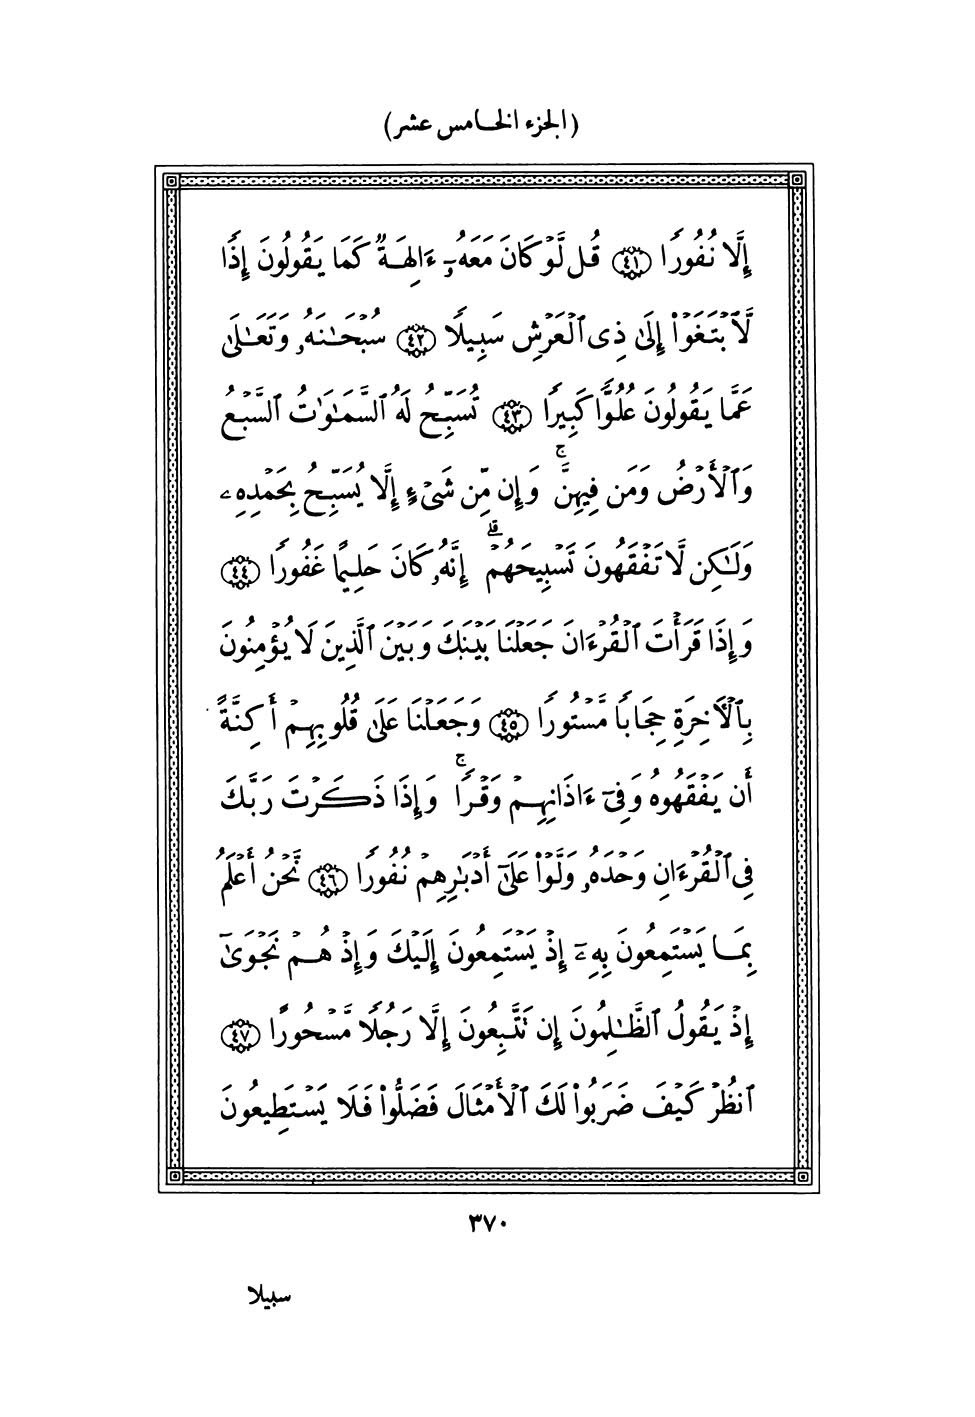 (الجزء الخامس عشر)
إِلَّا نُفُورًا ٤١ قُل لَّوْ كَانَ مَعَهُۥٓ ءَالِهَةٌ كَمَا يَقُولُونَ إِذًا
لَّٱبْتَغَوْا۟ إِلَىٰ ذِى ٱلْعَرْشِ سَبِيلًا ٤٢ سُبْحَـٰنَهُۥ وَتَعَـٰلَىٰ
عَمَّا يَقُولُونَ عُلُوًّا كَبِيرًا ٤٣ تُسَبِّحُ لَهُ ٱلسَّمَـٰوَٰتُ ٱلسَّبْعُ
وَٱلْأَرْضُ وَمَن فِيهِنَّ ۚ وَإِن مِّن شَىْءٍ إِلَّا يُسَبِّحُ بِحَمْدِهِۦ
وَلَـٰكِن لَّا تَفْقَهُونَ تَسْبِيحَهُمْ ۗ إِنَّهُۥ كَانَ حَلِيمًا غَفُورًا ٤٤
وَإِذَا قَرَأْتَ ٱلْقُرْءَانَ جَعَلْنَا بَيْنَكَ وَبَيْنَ ٱلَّذِينَ لَا يُؤْمِنُونَ
بِٱلْـَٔاخِرَةِ حِجَابًا مَّسْتُورًا ٤٥ وَجَعَلْنَا عَلَىٰ قُلُوبِهِمْ أَكِنَّةً
أَن يَفْقَهُوهُ وَفِىٓ ءَاذَانِهِمْ وَقْرًا ۚ وَإِذَا ذَكَرْتَ رَبَّكَ
فِى ٱلْقُرْءَانِ وَحْدَهُۥ وَلَّوْا۟ عَلَىٰٓ أَدْبَـٰرِهِمْ نُفُورًا ٤٦ نَّحْنُ أَعْلَمُ
بِمَا يَسْتَمِعُونَ بِهِۦٓ إِذْ يَسْتَمِعُونَ إِلَيْكَ وَإِذْ هُمْ نَجْوَىٰٓ
إِذْ يَقُولُ ٱلظَّـٰلِمُونَ إِن تَتَّبِعُونَ إِلَّا رَجُلًا مَّسْحُورًا ٤٧
ٱنظُرْ كَيْفَ ضَرَبُوا۟ لَكَ ٱلْأَمْثَالَ فَضَلُّوا۟ فَلَا يَسْتَطِيعُونَ
٣٧٠
سبيلا